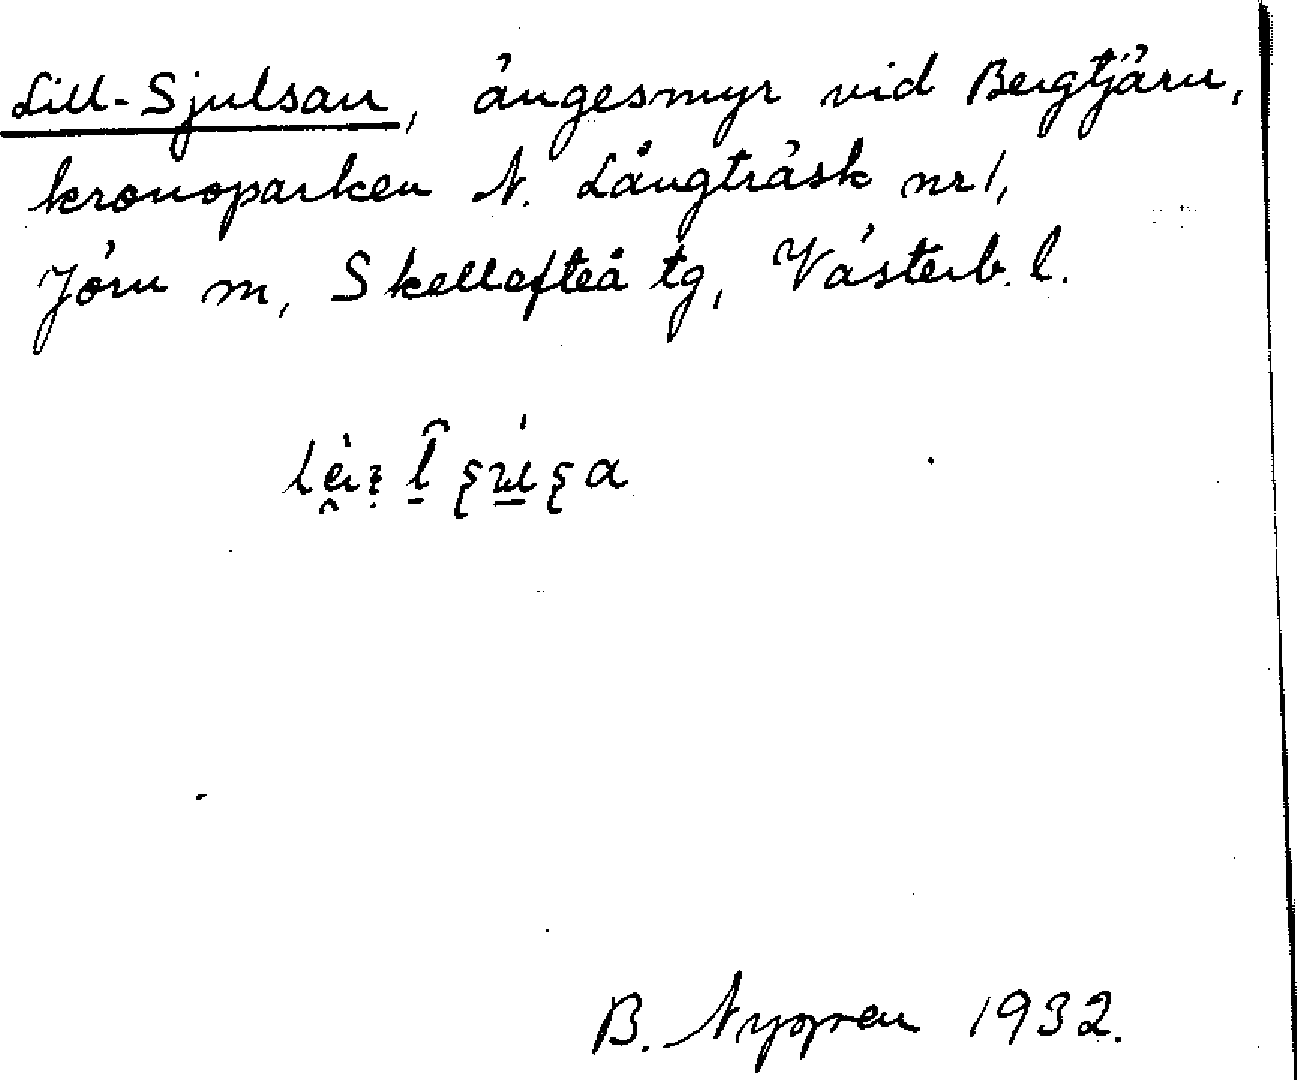 Lill-Sjulsan, ängesmyr vid Bergtjärn,
kronoparken N. Långträsk nr 1,
Jörn m, Skellefteå tg, Västerb. l.
B. Nygren 1932.